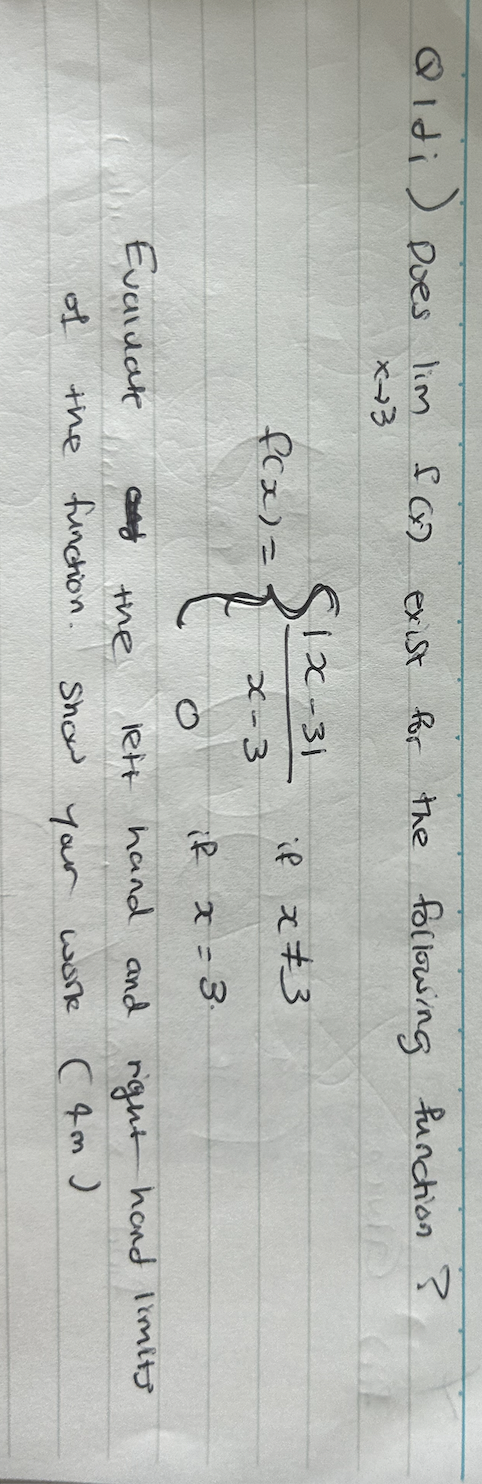 Q1di) Does lim f(x) exist for the following function?
x→3
f(x) = { |x-3|
x-3 if x≠3
0 if x = 3.
Evaluate the left hand and right hand limits
of the function. Show your work (4m)